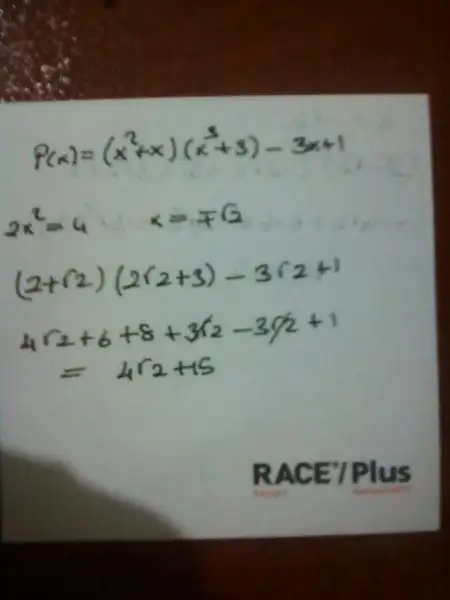 P(x) = (x²+x)(x³+3) - 3x+1
2x² = 4 x = ∓√2
(2+√2)(2√2+3) - 3√2+1
4√2+6+8+3√2-3√2+1
= 4√2+15
RACE/Plus